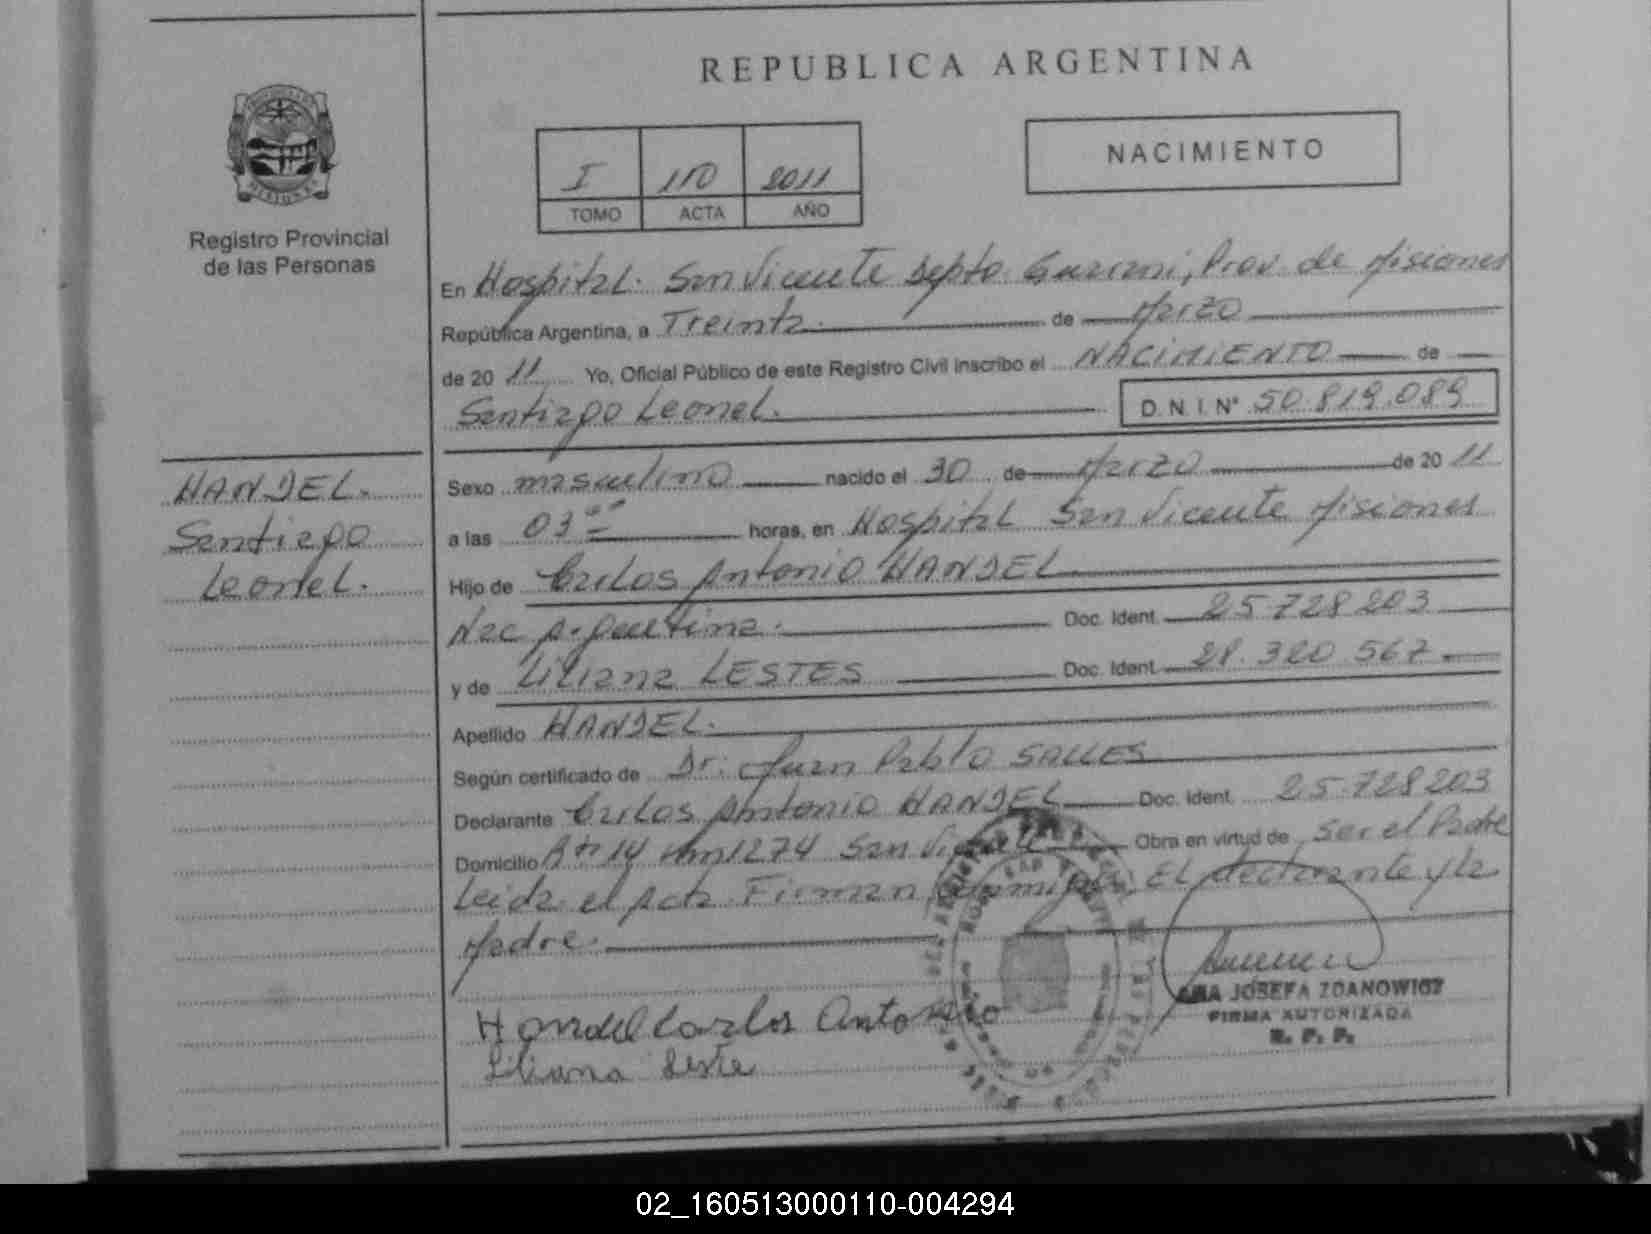 REPUBLICA ARGENTINA
PROVINCIA DE
MISIONES
Registro Provincial
de las Personas
I 110 2011
TOMO ACTA AÑO
NACIMIENTO
En Hospital. San Vicente Depto. Guarani, Prov. de Misiones
República Argentina, a Treinta. de Marzo
de 20 11 Yo, Oficial Público de este Registro Civil inscribo el NACIMIENTO de
Santiago Leonel. D.N.I. N° 50.819.089
HANDEL.
Santiago
Leonel.
Sexo masculino nacido el 30 de Marzo de 20 11
a las 03 horas, en Hospital San Vicente Misiones
Hijo de Carlos Antonio HANDEL
Nac Argentina. Doc. Ident. 25.728.203
y de Liliana LESTES Doc. Ident. 28.320.567
Apellido HANDEL.
Según certificado de Dr. Juan Pablo SALLES
Declarante Carlos Antonio HANDEL Doc. Ident. 25.728.203
Domicilio Rta 14 km 1274 San Vicente Obra en virtud de ser el Padre
Leida el Acta Firman El declarante y la
Madre.
Handel Carlos Antonio
Liliana Leste
ANA JOSEFA ZDANOWICZ
FIRMA AUTORIZADA
R. P. P.
02_160513000110-004294